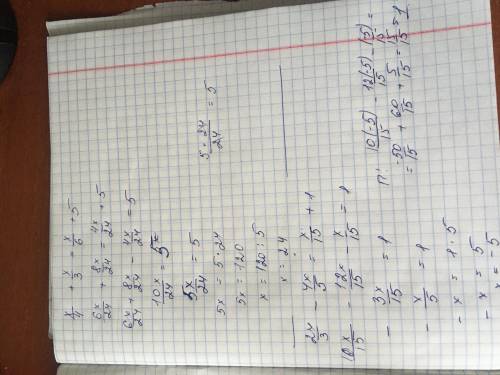 x/4 + x/3 = x/6 + 5
6x/24 + 8x/24 = 4x/24 + 5
6x/24 + 8x/24 - 4x/24 = 5
10x/24 = 5
5x/24 = 5
5x = 5·24
5x = 120
x = 120 : 5
x = 24
5·24/24 = 5
2x/3 - 4x/5 = x/15 + 1
10x/15 - 12x/15 - x/15 = 1
- 3x/15 = 1
- x/5 = 1
- x = 1·5
- x = 5
x = -5
П: 10(-5)/15 - 12(-5)/15 - (-5)/15 =
= -50/15 + 60/15 + 5/15 = 15/15 = 1